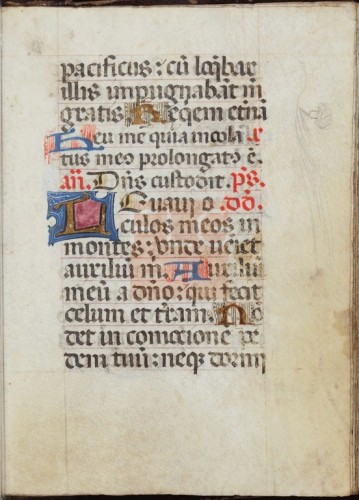 pacificus: cū loq̄bar
illis inpugnabāt m̄
gratis Reqem etnā
Heu me quia incola
tus meo prolongats ē.
añ. Dñs custodit. ps.
Leuaui o. dd.
culos meos in
montes: unde ueiet
auxiliū m. Auxiliū
meū a dño: qui fecit
celum et trām. No
det in comocione pe
dem tuū: neq̄ dormi